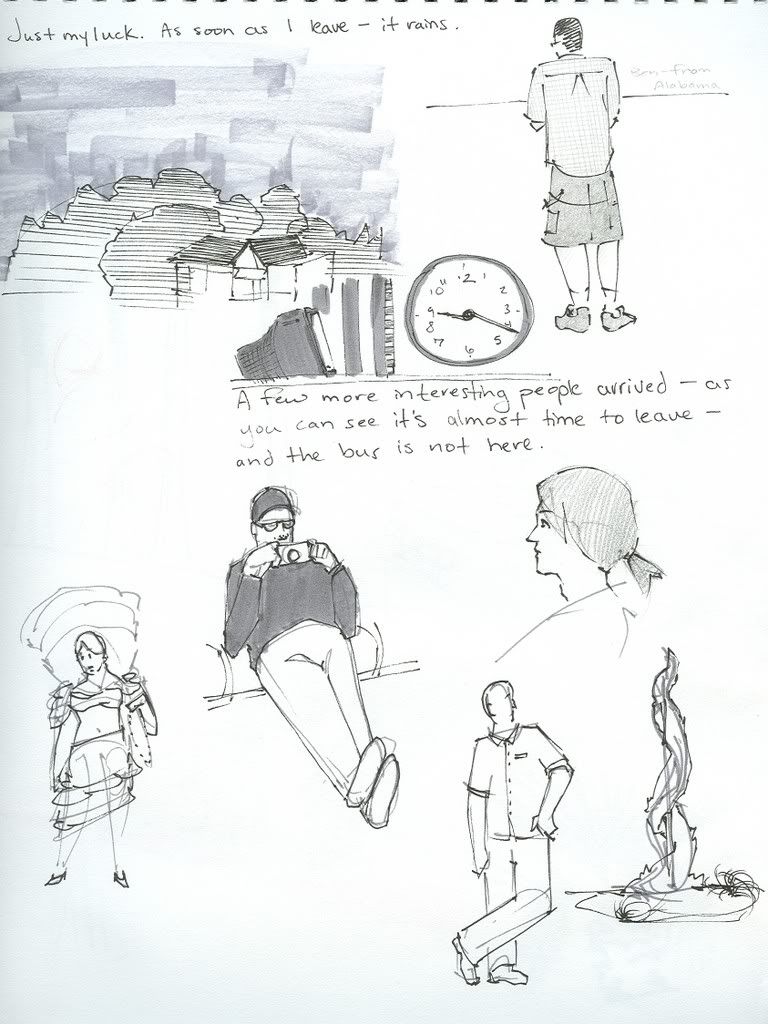 Just my luck. As soon as I leave – it rains.
from
Alabama
12
11 1
10 2
9 3
8 4
7 5
6
A few more interesting people arrived – as
you can see it's almost time to leave –
and the bus is not here.